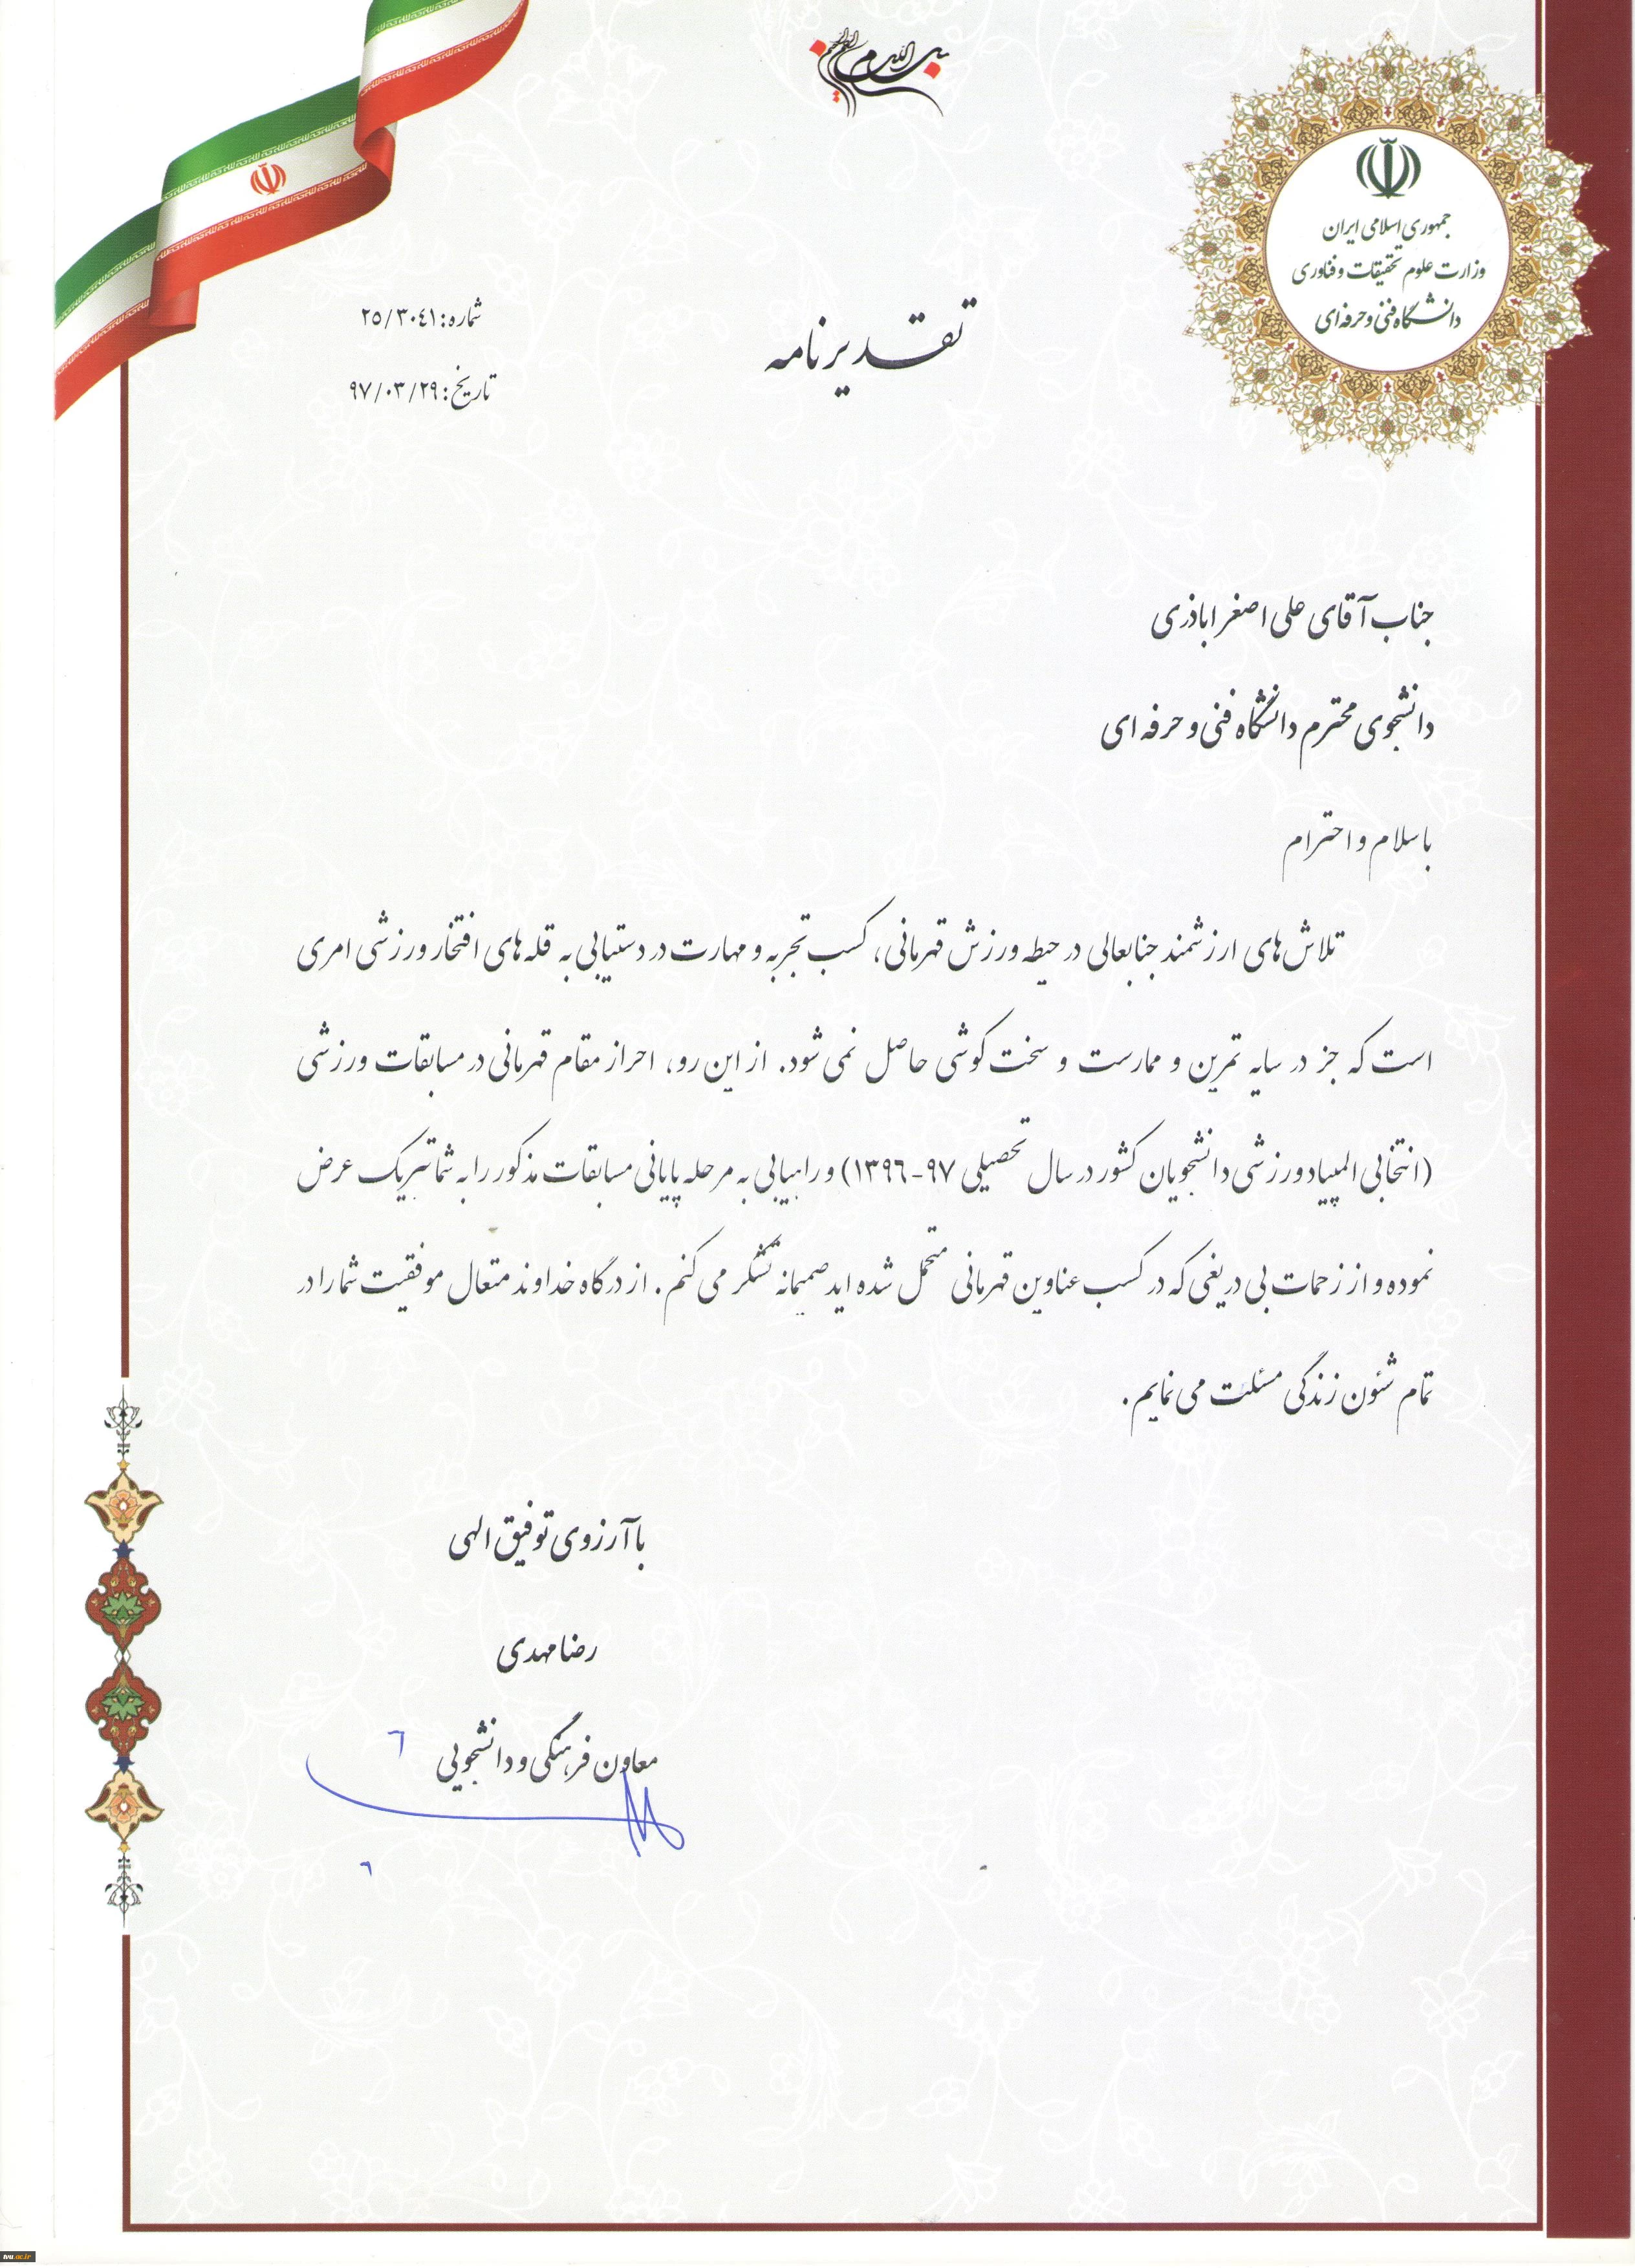 بسم الله الرحمن الرحیم
جمهوری اسلامی ایران
وزارت علوم تحقیقات و فناوری
دانشگاه فنی و حرفه ای
شماره: ٢٥/٣٠٤١
تاریخ: ٩٧/٠٣/٢٩
تقدیرنامه
جناب آقای علی اصغر اباذری
دانشجوی محترم دانشگاه فنی و حرفه ای
با سلام و احترام
تلاش های ارزشمند جنابعالی در حیطه ورزش قهرمانی، کسب تجربه و مهارت در دستیابی به قله های افتخار ورزشی امری
است که جز در سایه تمرین و ممارست و سخت کوشی حاصل نمی شود. از این رو، احراز مقام قهرمانی در مسابقات ورزشی
(انتخابی المپیاد ورزشی دانشجویان کشور در سال تحصیلی ٩٧-١٣٩٦) و راهیابی به مرحله پایانی مسابقات مذکور را به شما تبریک عرض
نموده و از زحمات بی دریغی که در کسب عناوین قهرمانی متحمل شده اید صمیمانه تشکر می کنم. از درگاه خداوند متعال موفقیت شما را در
تمام شئون زندگی مسئلت می نمایم.
با آرزوی توفیق الهی
رضا مهدی
معاون فرهنگی و دانشجویی
tvu.ac.ir